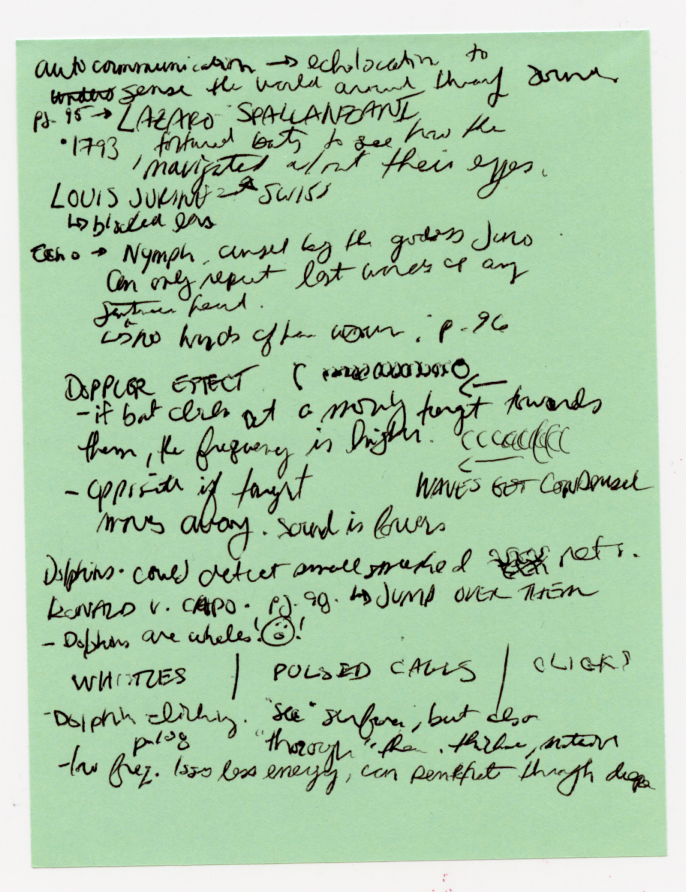 autocommunication → echolocation to
sense the world around through sound
pg. 95 → LAZARO SPALLANZANI
• 1793 tortured bats to see how the
navigated about their eyes.
LOUIS JURINE → SWISS
↳ blocked ears
Echo → Nymph, cursed by the godess Juno
Can only repeat last words of any
sentence heard.
↳ no words of her own. p. 96
DOPPLER EFFECT
- if bat clicks at a moving target towards
them, the frequency is higher.
- opposite if target WAVES GET CONDENSED
moves away. sound is lowers
Dolphins. could detect small meshed nets.
RONALD V. CAPO. pg. 98. ↳ JUMP OVER THEM
- Dolphins are whales! !
WHISTLES | PULSED CALLS | CLICKS
- Dolphin clicking. "see" surface, but also
"thorough" them. thickness, material
- low freq. less energy, can penetrate through deeper